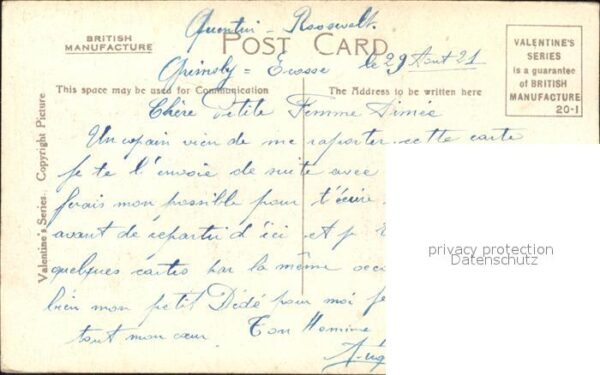 Quentin - Roosevelt.
BRITISH
MANUFACTURE
POST CARD
VALENTINE'S
SERIES
is a guarantee
of BRITISH
MANUFACTURE
20-1
Grimsby = Ecosse le 29 Aout 21
This space may be used for Communication
The Address to be written here
Chère Petite Femme Aimée
Un copain vien de me raporter cette carte
je te l'envoie de suite avec
ferais mon possible pour t'écrire
avant de répartir d'ici et je
quelques cartes par la même occa
bien mon petit Dédé pour moi je
tout mon cœur Ton Homme
Aug
Valentine's Series. Copyright Picture
privacy protection
Datenschutz